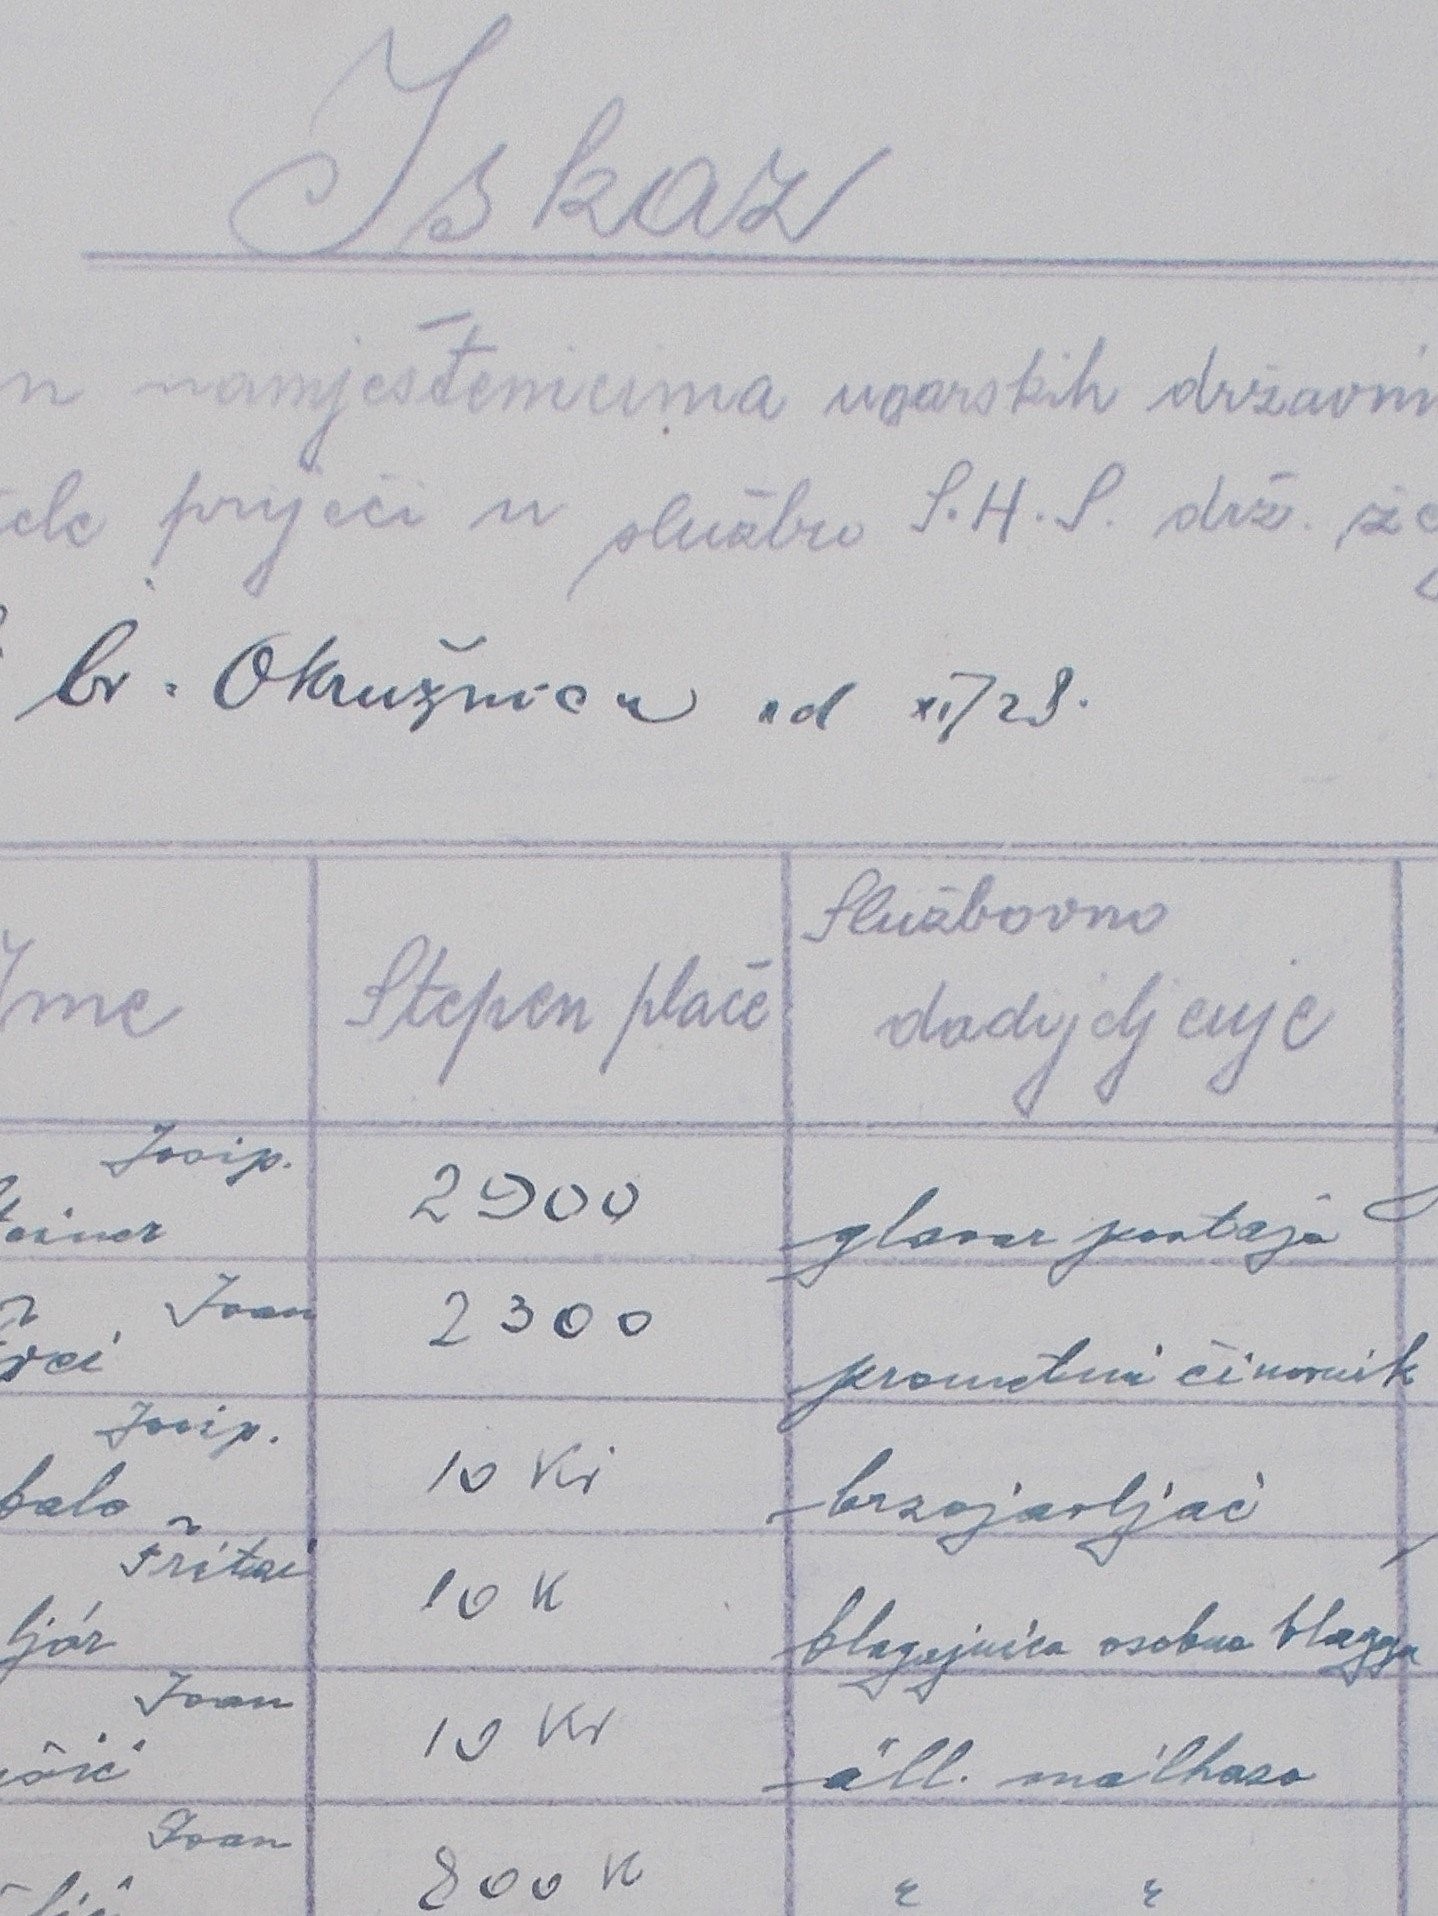 Iskaz
namještenicima ugarskih državni
prijeći u službu S.H.S. drž. že
br. Okružnica od XI/23.
Ime Stepen plaće Službovno
dadijeljenje
Josip. 2900 glavar postaja
Ivan 2300 prometni činovnik
Josip. 10 Kr brzojavljač
10 K blagajnica osobna blagaja
Ivan 10 Kr áll. málhaso
Ivan 800 K " "